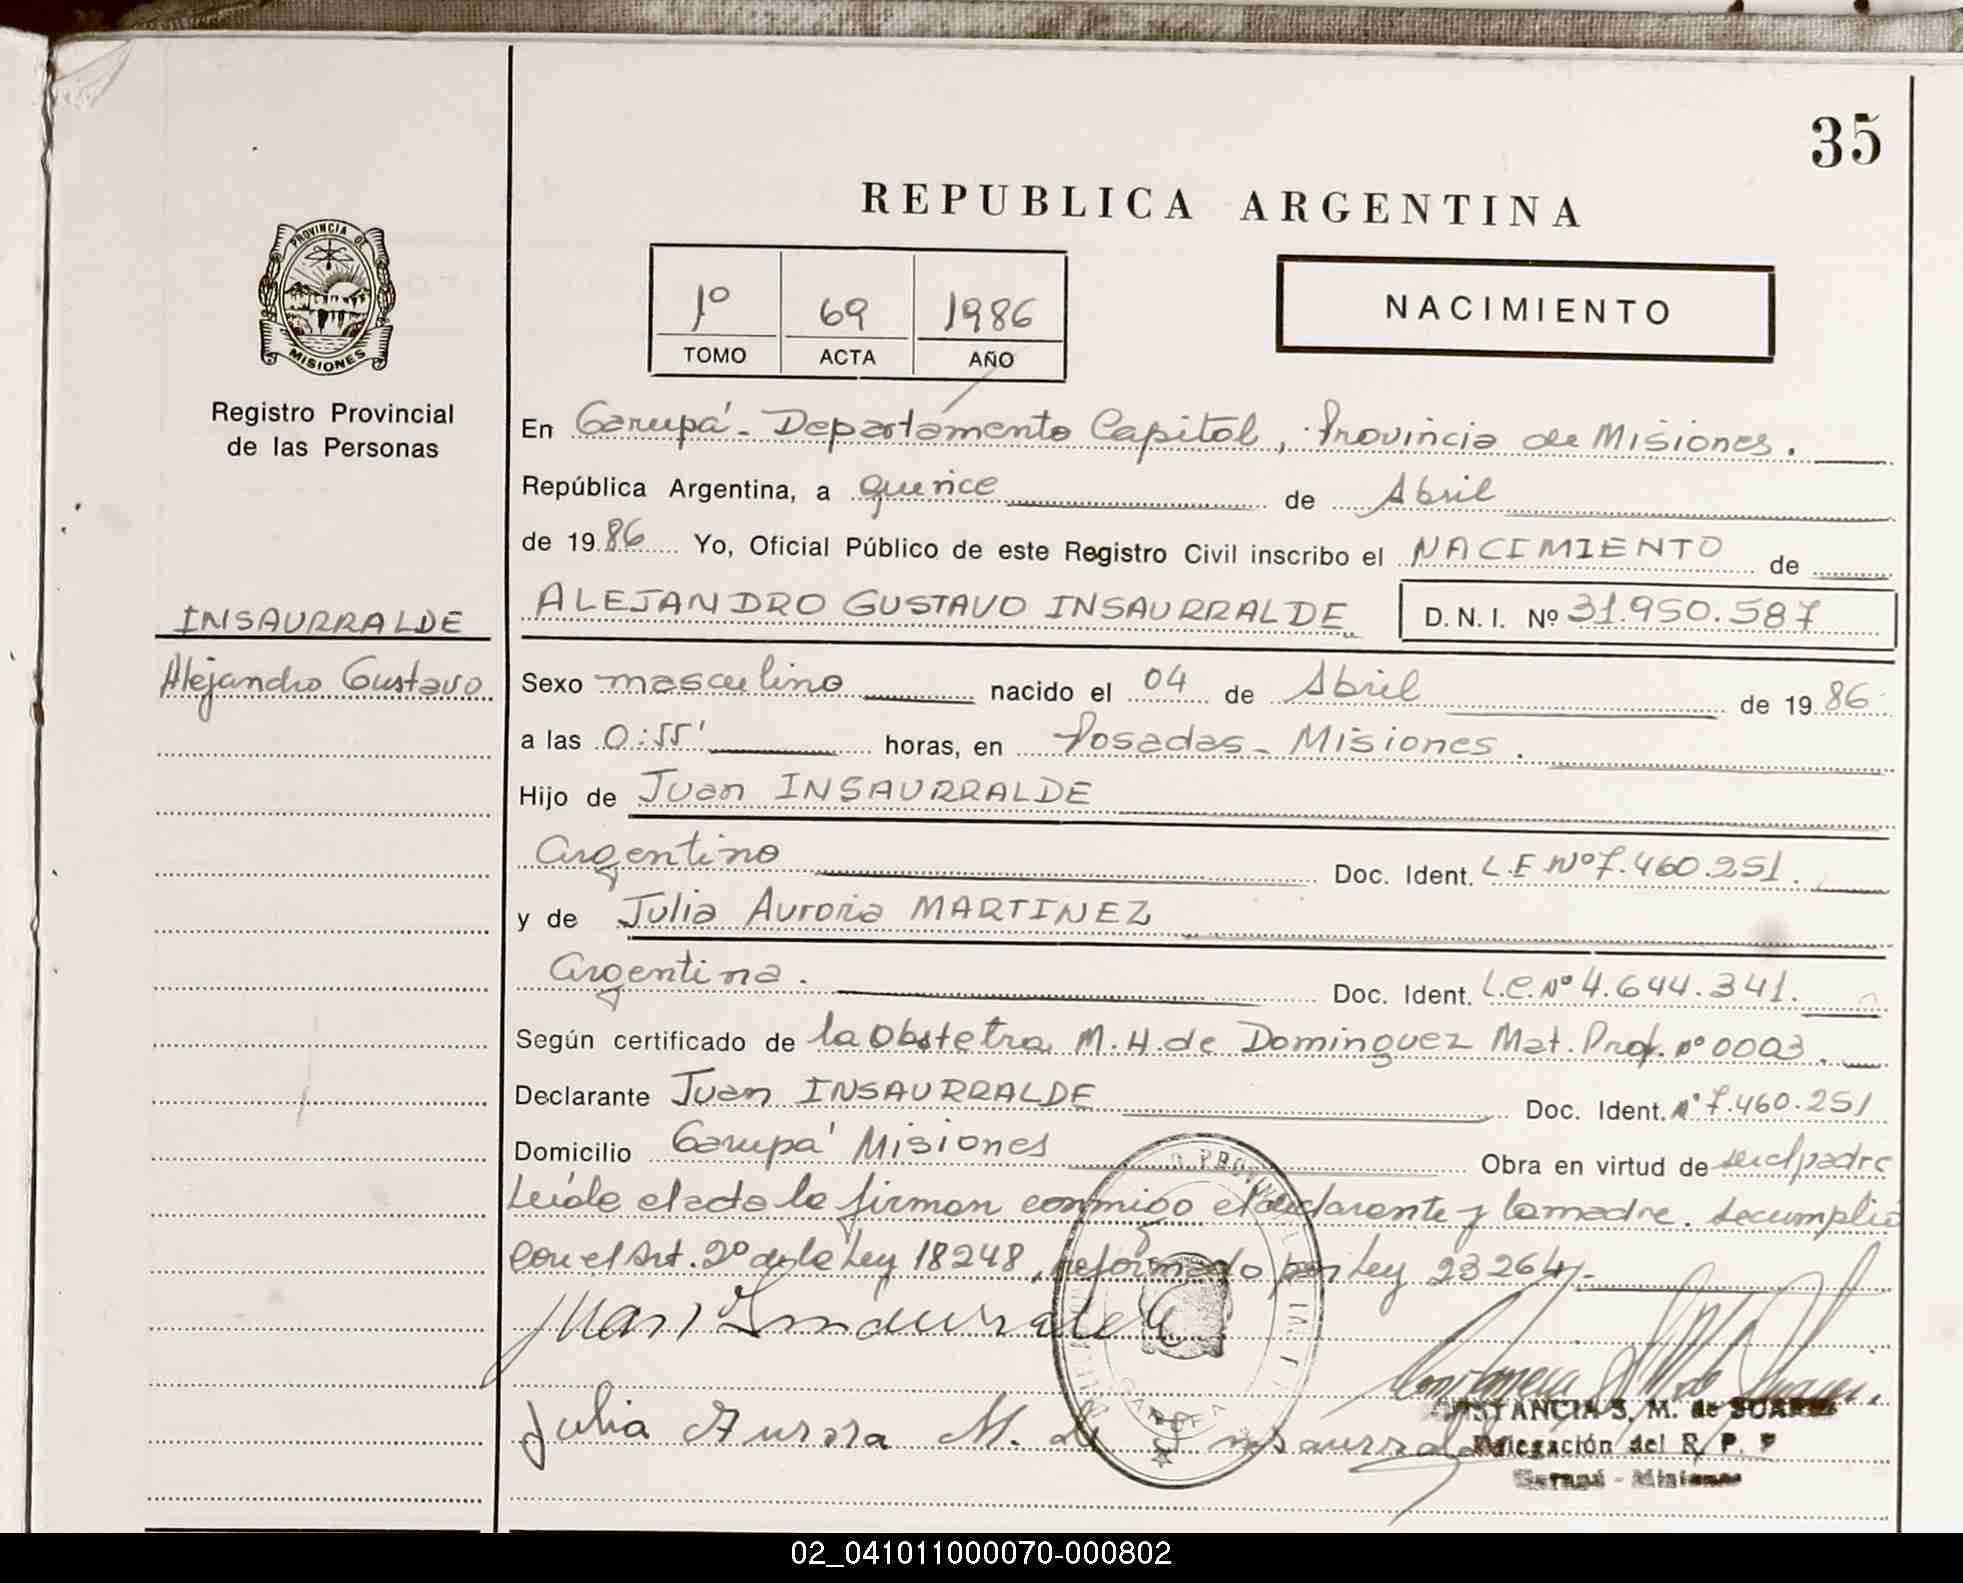 35
REPUBLICA ARGENTINA
PROVINCIA DE
MISIONES
Registro Provincial
de las Personas
1º 69 1986
TOMO ACTA AÑO
NACIMIENTO
En Garupá - Departamento Capital, Provincia de Misiones.
República Argentina, a quince de Abril
de 1986 Yo, Oficial Público de este Registro Civil inscribo el NACIMIENTO de
INSAURRALDE
Alejandro Gustavo
ALEJANDRO GUSTAVO INSAURRALDE D. N. I. Nº 31.950.587
Sexo masculino nacido el 04 de Abril de 1986
a las 0:55' horas, en Posadas - Misiones.
Hijo de Juan INSAURRALDE
Argentino Doc. Ident. L.E Nº 7.460.251.
y de Julia Aurora MARTINEZ
Argentina. Doc. Ident. L.C. Nº 4.644.341.
Según certificado de la Obstetra M. H. de Dominguez Mat. Prof. nº 0003.
Declarante Juan INSAURRALDE Doc. Ident. Nº 7.460.251
Domicilio Garupá Misiones Obra en virtud de ser el padre
Leída el acta la firman conmigo el declarante y la madre. Se cumplió
con el Art. 2º de la Ley 18248, reformado por Ley 23264.-
Juan Insaurralde
Julia Aurora M. de Insaurralde
S. M. de SUAREZ
Delegación del R. P. P
Garupá - Misiones
02_041011000070-000802